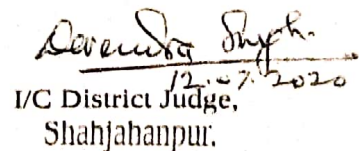 Devendra Singh.
12-07-2020
I/C District Judge,
Shahjahanpur.